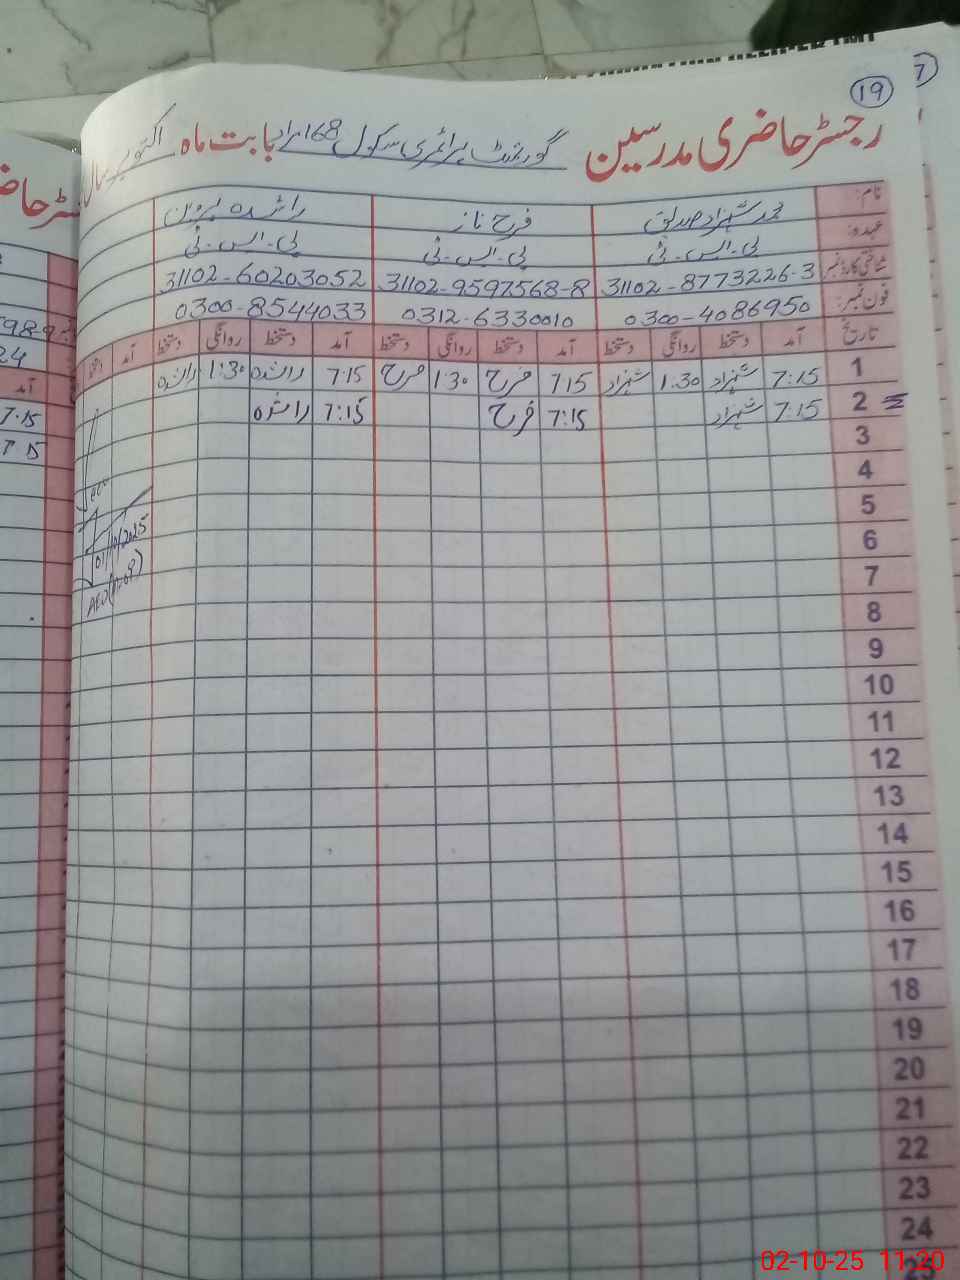 19
7
رجسٹر حاضری مدرسین گورنمنٹ پرائمری سکول 168 مراد بابت ماہ اکتوبر سال
نام: محمد شہزاد صدیق فرح ناز راشدہ پروین
عہدہ: پی۔ایس۔ٹی پی۔ایس۔ٹی پی۔ایس۔ٹی
شناختی کارڈ نمبر 31102-8773226-3 31102-9597568-8 31102-60203052
فون نمبر: 0300-4086950 0312-6330010 0300-8544033
تاریخ آمد دستخط روانگی دستخط آمد دستخط روانگی دستخط آمد دستخط روانگی دستخط آمد دستخط
1 7:15 شہزاد 1:30 شہزاد 7:15 فرح 1:30 فرح 7:15 راشدہ 1:30 راشدہ
2 7:15 شہزاد 7:15 فرح 7:15 راشدہ
3
4
5
6
7
8
9
10
11
12
13
14
15
16
17
18
19
20
21
22
23
24
01/10/2025
AEO
آمد
7.15
7.15
02-10-25 11:20